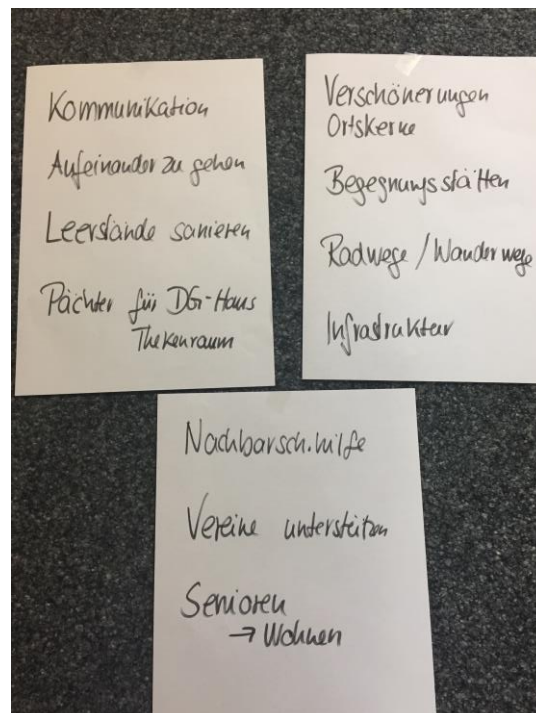 Kommunikation
Aufeinander zu gehen
Leerstände sanieren
Pächter für DG-Haus
Thekenraum
Verschönerungen
Ortskerne
Begegnungsstätten
Radwege / Wanderwege
Infrastruktur
Nachbarsch.hilfe
Vereine unterstützen
Senioren
→ Wohnen